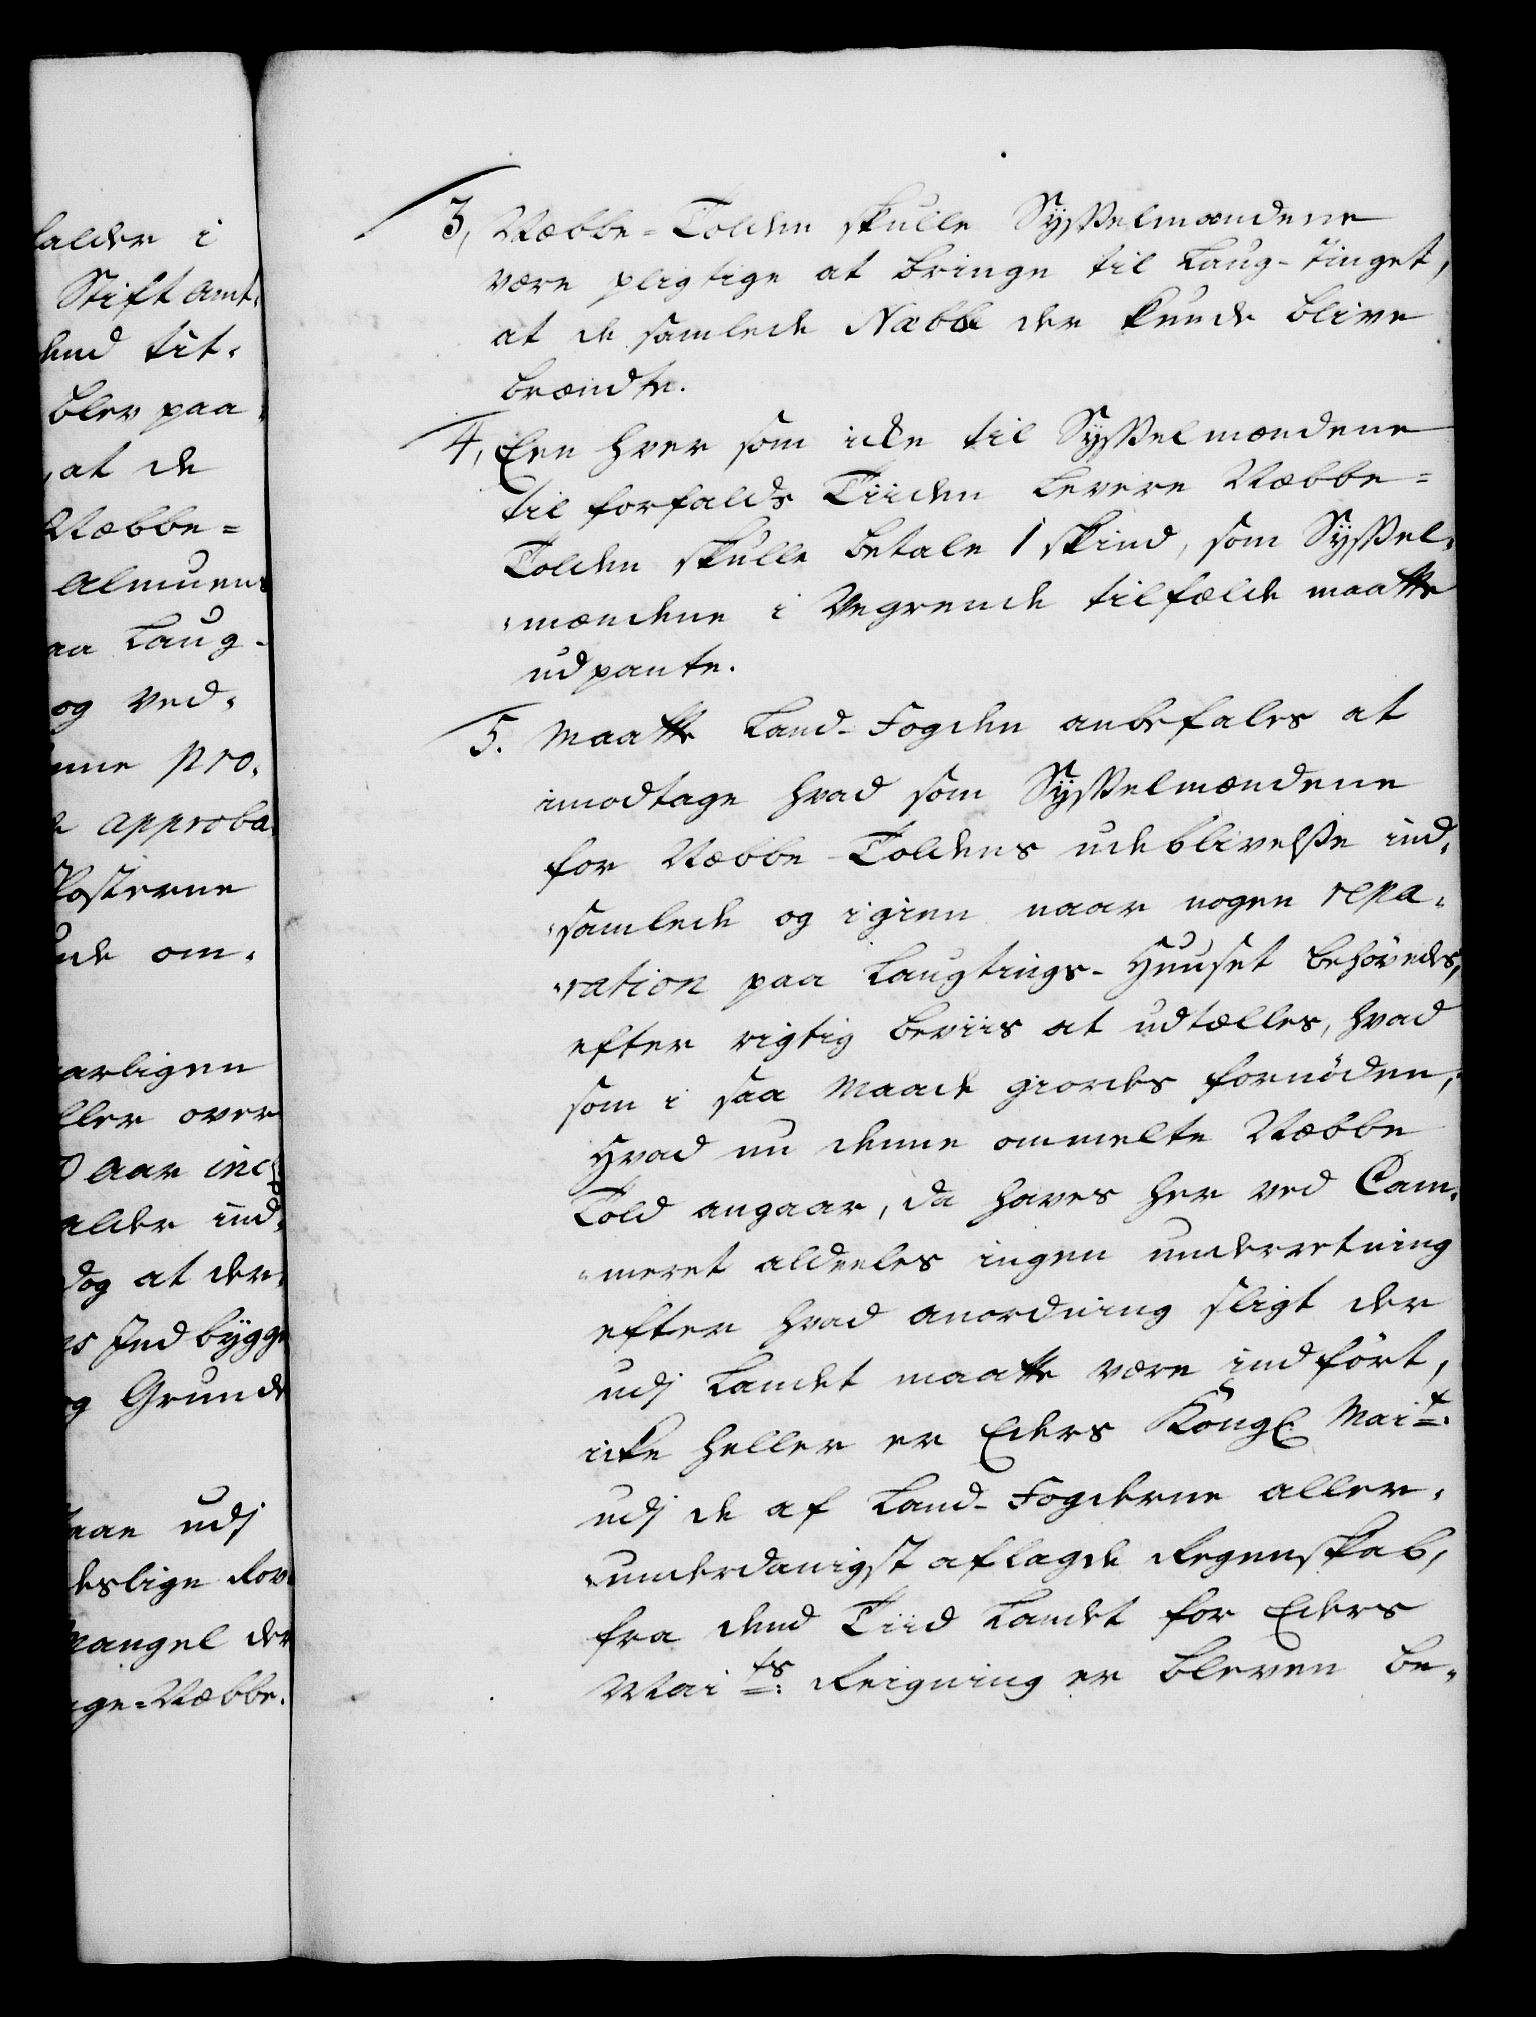 falder i
Stift Amt-
dend tit-
blev paa-
at de
Næbbe=
Almuens
aa Laug-
og ved-
nne pro-
e approba-
Posterne
nde om-
aarligen
ller over
0 Aar incl.
alder ind-
dog at der-
es Indbygge
og Grunde
udj
deslige Rov
Mangel der
ge-Næbbe.
3, Næbbe-Tolden skulle Sysselmændene
være pligtige at bringe til Laug-Tinget,
at de samlede Næbbe der kunde blive
brændte.
4, Een hver som icke til Sysselmændene
til forfalds Tiiden levere Næbbe=
Tolden skulle betale 1 skind, som Syssel-
mændene i Vegrende tilfælde maatte
udpante.
5. Maatte Land-Fogden anbefales at
imodtage hvad som Sysselmændene
for Næbbe-Toldens udeblivelsse ind-
samlede og igien naar nogen repa-
ration paa Laugtings-Huuset behövedes,
efter rigtig beviis at udtælles, hvad
som i saa Maade giordes fornöden,
Hvad nu denne ommelte Næbbe
Told angaar, da haves her ved Cam-
meret aldeeles ingen underretning
efter hvad anordning sligt der
udj Landet maatte være indfört,
icke heller er Eders Kongl Mait:
udj de af Land-Fogderne aller-
underdanigst aflagde Regenskab,
fra dend Tiid Landet for Eders
Maits: Reigning er bleven be-